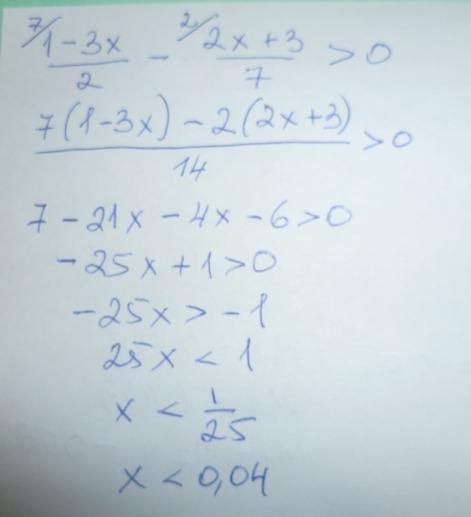 ⁷/(1-3x)/2 - ²/(2x+3)/7 > 0
(7(1-3x) - 2(2x+3))/14 > 0
7 - 21x - 4x - 6 > 0
-25x + 1 > 0
-25x > -1
25x < 1
x < 1/25
x < 0,04